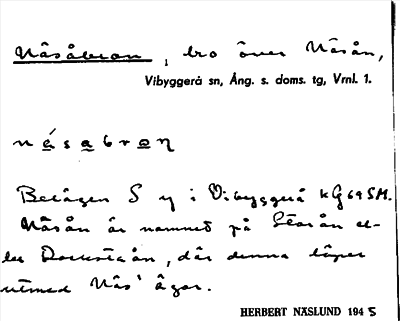 Näsåbron, bro över Näsån,
Vibyggerå sn, Ång. s. doms. tg, Vrnl. 1.
násabron
Belägen S y i Vibyggerå kG69SM.
Näsån är namnet på Storån el-
ler Docksta ån, där denna löper
utmed Näs' ägor.
HERBERT NÄSLUND 1945